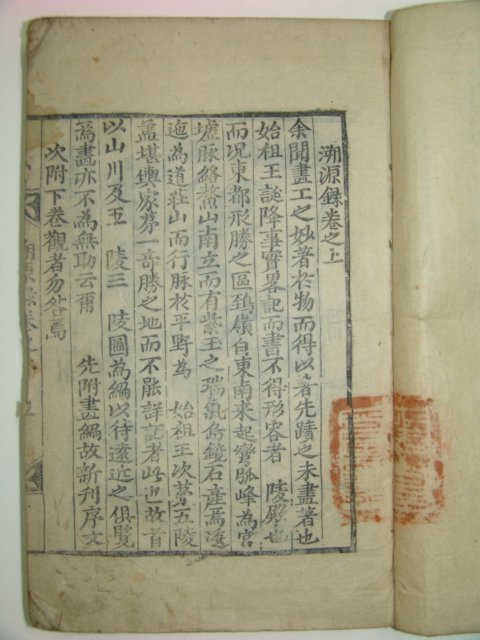 溯源錄卷之上
余聞畫工之妙著於物而得以著先蹟之未盡著也
始祖王誕降事實畧記而書不得形容者 陵殿也
而况東都形勝之區鵄嶺自東南来起寶脈峰為宮
墟脉絡鰲山南立而有紫玉之瑞氣鏡石産焉
迤為道莊山而行脉於平野為 始祖王次苐五陵
盖堪輿家苐一奇勝之地而不能詳記者此也故首
以山川及五 陵三 陵圖為編以待遠近之俱覧
為畫亦不為無助云爾 先附畫編故新刊序文
次附下卷觀者勿咎焉